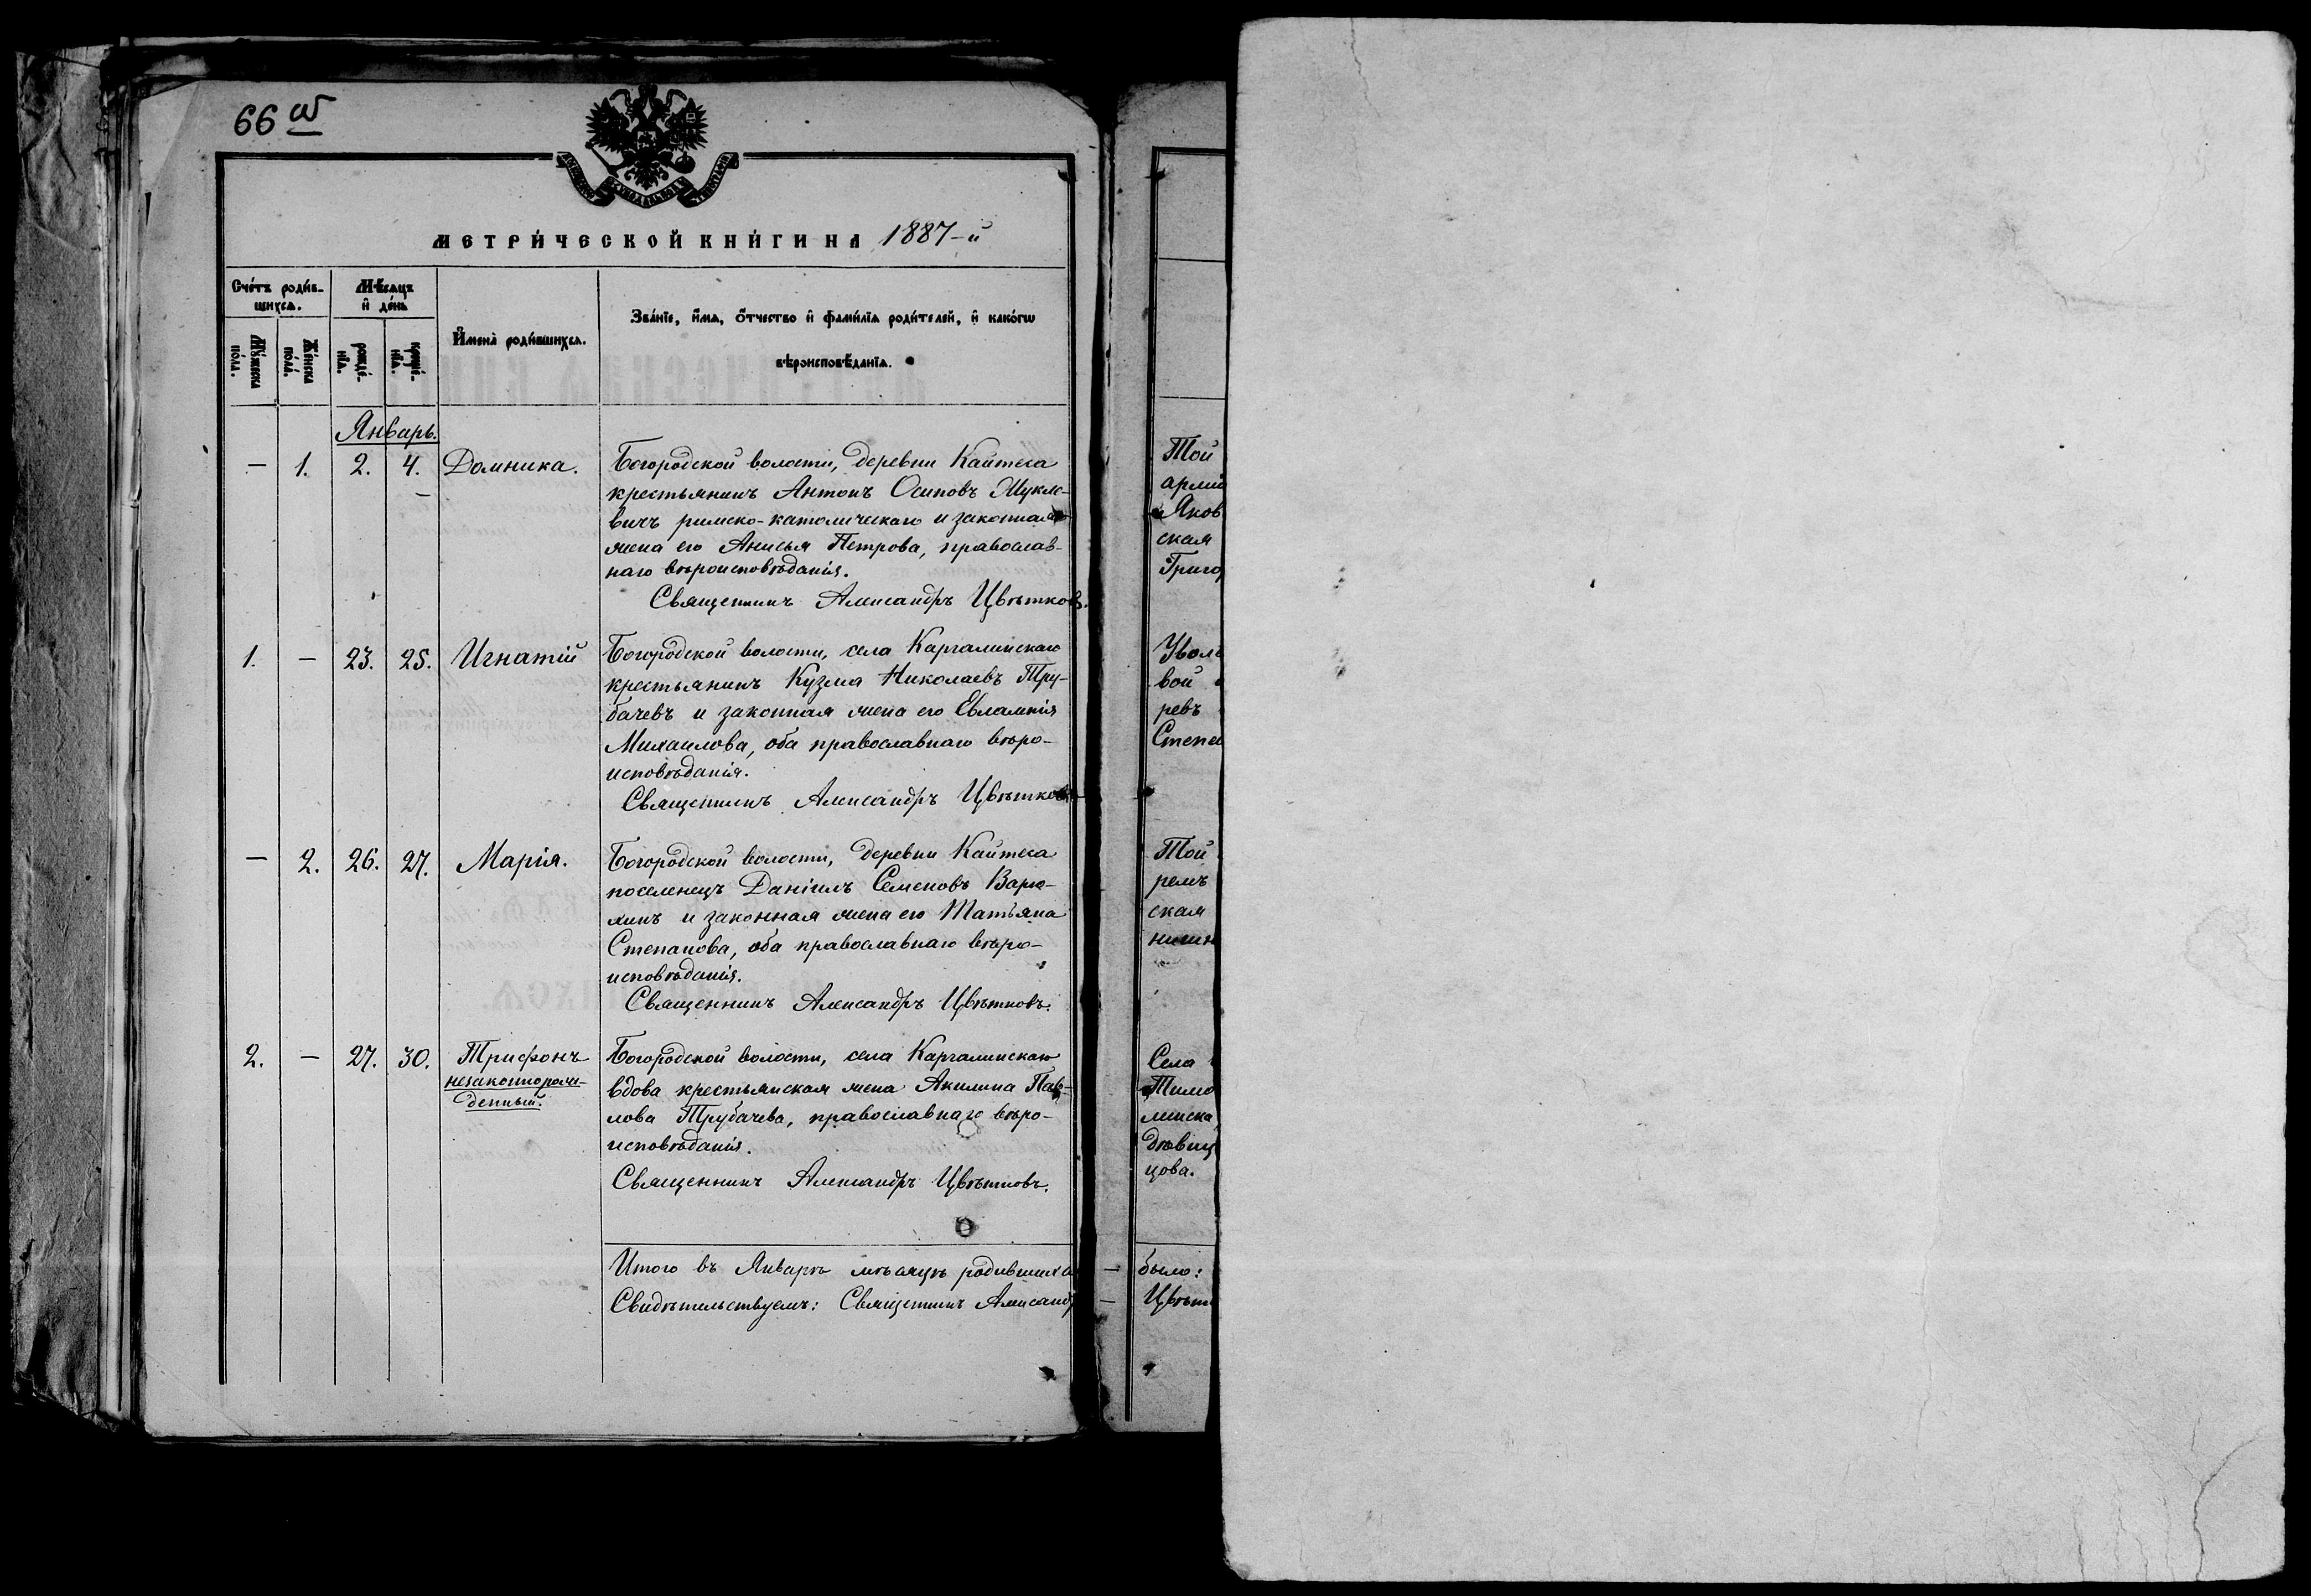 66 об
МЕТРИЧЕСКОЙ КНИГИ НА 1887-й
Счетъ родив-
шихся.
Мѣсяцъ
и день
Имена родившихся.
Званіе, имя, отчество и фамилія родителей, и какого
вѣроисповѣданія.
Мужеска
пола.
Женска
пола.
рожде-
нія.
креще-
нія.
Январь.
— 1. 2. 4. Домника.
Богородской волости, деревни Кайтеса
крестьянинъ Антонъ Осиповъ Жукле-
вичъ римско-католическаго и законная
жена его Анисья Петрова, православ-
наго вѣроисповѣданія.
Священникъ Александръ Цвѣтковъ.
1. — 23. 25. Игнатій
Богородской волости, села Каргалинскаго
крестьянинъ Кузма Николаевъ Тру-
бачевъ и законная жена его Евлампія
Михаилова, оба православнаго вѣро-
исповѣданія.
Священникъ Александръ Цвѣтковъ
— 2. 26. 27. Марія.
Богородской волости, деревни Кайтеса
поселенецъ Даніилъ Семеновъ Варю-
хинъ и законная жена его Татьяна
Степанова, оба православнаго вѣро-
исповѣданія.
Священникъ Александръ Цвѣтковъ.
2. — 27. 30. Трифонъ
незаконнорож-
денный.
Богородской волости, села Каргалинскаго
вдова крестьянская жена Акилина Пав-
лова Трубачева, православнаго вѣро-
исповѣданія.
Священникъ Александръ Цвѣтковъ.
Итого въ Январѣ мѣсяцѣ родившихся
Свидѣтельствуемъ: Священникъ Александ
Той
арми
Яков
ская
Григо
Увол
вой
ревъ
Степа
Той
ремъ
ская
Села
Тимо
линска
дѣвиц
цова.
— было:
— Цвѣт